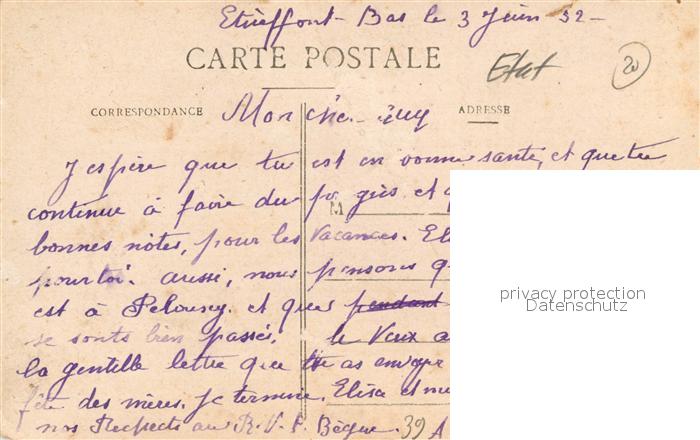 Etueffont-Bas le 3 Juin 32-
CARTE POSTALE
Etat
20
CORRESPONDANCE
ADRESSE
Mon cher Guy
J espère que tu est en bonne santé, et que tu
continue à faire du progrès et
M
bonnes notes, pour les Vacances.
pour toi. aussi, nous pensons
est à Pelousey. et que pendant
se sonts bien passés. le Veux
la gentille lettre que tu as envoyé
fête des mères. je termine. Elisa et
nos Respects au R.V.P. Bègue. 39
privacy protection
Datenschutz